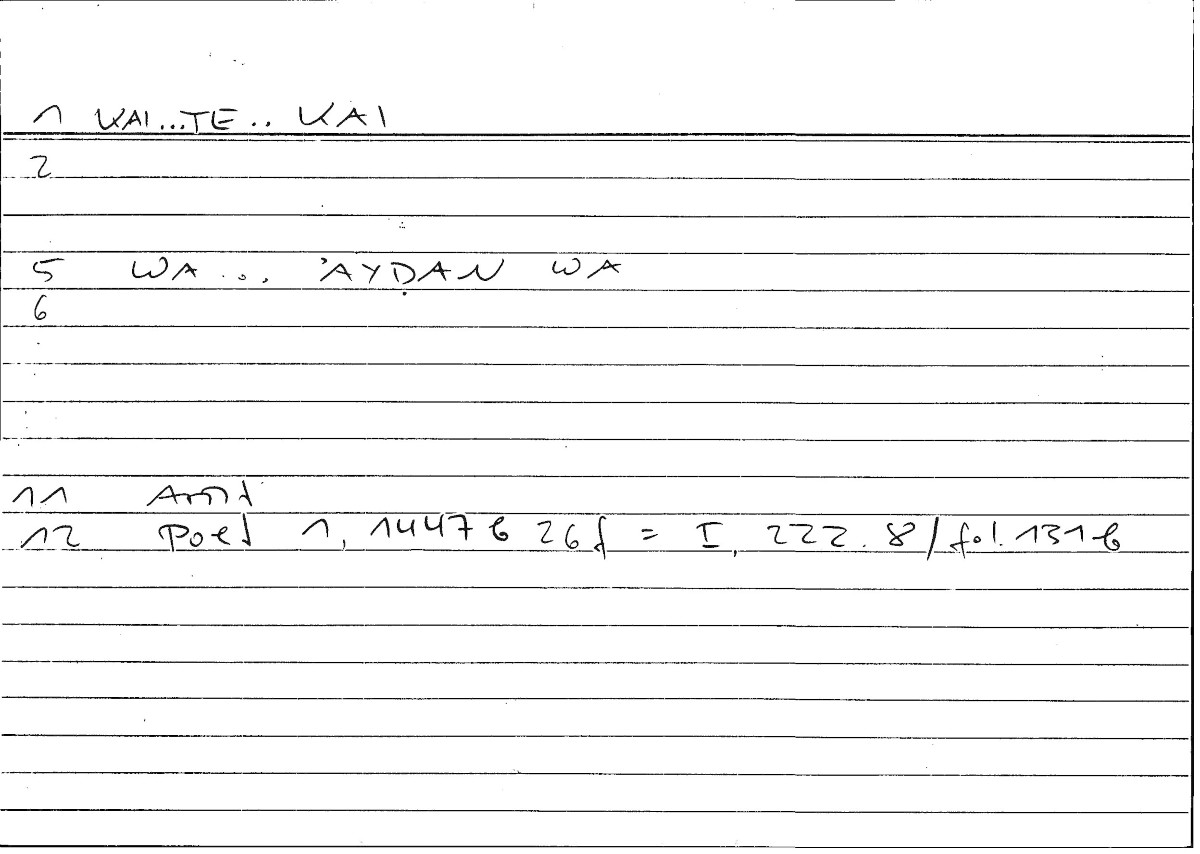 1 KAI...TE.. KAI
2
5 WA ... ʾAYḌAN WA
6
11 Arist
12 Poet 1, 1447 b 26f = I, 222.8/fol.131b